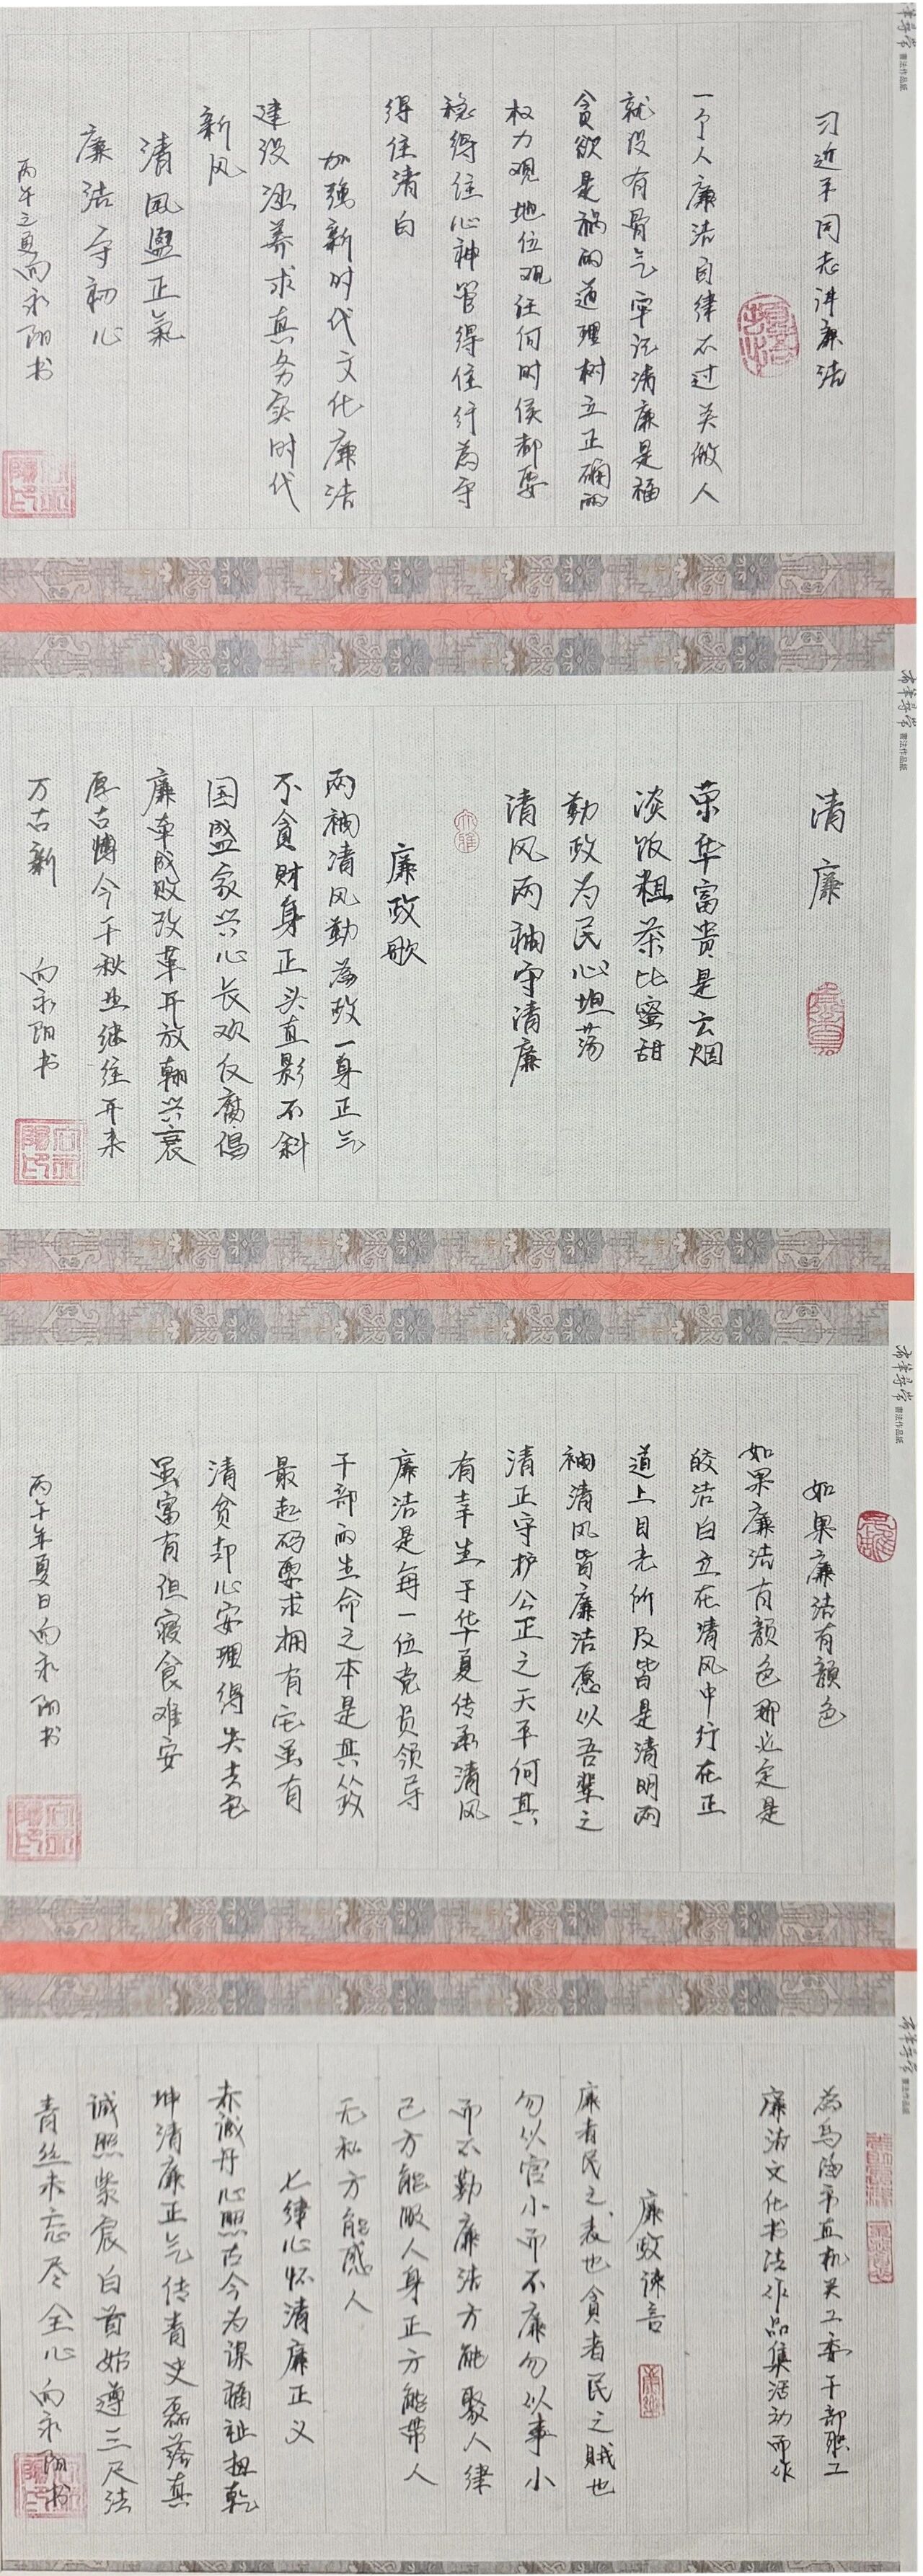 习近平同志讲廉洁
一个人廉洁自律不过关做人
就没有骨气牢记清廉是福
贪欲是祸的道理树立正确的
权力观地位观任何时侯都要
稳得住心神管得住行为守
得住清白
加强新时代文化廉洁
建设涵养求真务实时代
新风
清風盈正氣
廉洁守初心
丙午之夏向永阳书
有筆尋常 書法作品紙
清廉
荣华富贵是云烟
淡饭粗茶比蜜甜
勤政为民心坦荡
清风两袖守清廉
大雅
廉政歌
两袖清风勤為政一身正气
不貪财身正头直影不斜
国盛家兴心长欢反腐倡
廉率成败改革开放翰兴衰
厚古博今千秋业继往开来
万古新 向永阳书
有筆尋常 書法作品紙
如果廉洁有颜色
如果廉洁有颜色那必定是
皎洁白立在清风中行在正
道上目光所及皆是清明两
袖清风皆廉洁愿以吾辈之
清正守护公正之天平何其
有幸生于华夏传承清风
廉洁是每一位党员领导
干部的生命之本是其从政
最起码要求拥有它虽有
清贫却心安理得失去它
虽富有但寝食难安
丙午年夏日向永阳书
有筆尋常 書法作品紙
為乌海市直机关工委干部职工
廉洁文化书法作品集活动而作
廉政谏言
廉者民之表也貪者民之贼也
勿以官小而不廉勿以事小
而不勤廉洁方能聚人律
己方能服人身正方能带人
无私方能感人
七律心怀清廉正义
赤诚丹心照古今为谋福祉扭乾
坤清廉正气传青史磊落真
诚照紫宸白首始遵三尺法
青丝未忘尽全心 向永阳书